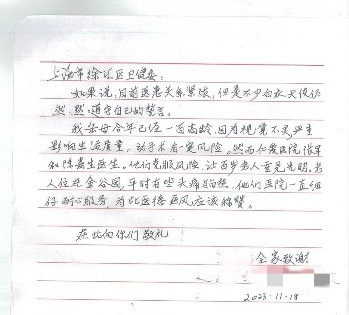 上海市徐汇区卫健委:
如果说,目前医患关系紧张,但是不少白衣天使仍
然,然遵守自己的誓言。
我岳母今年已经一百高龄,因为视觉不灵严重
影响生活质量,动手术有一定风险,然而仁爱医院张军
和陈医生医生,他们克服风险,让百岁老人重见光明。老
人住进金谷园,平时有些头痛脑热,他们医院一直细
仔耐心服务,为此医德医风应该称赞。
在此向你们敬礼
全家致谢
2023-11-18